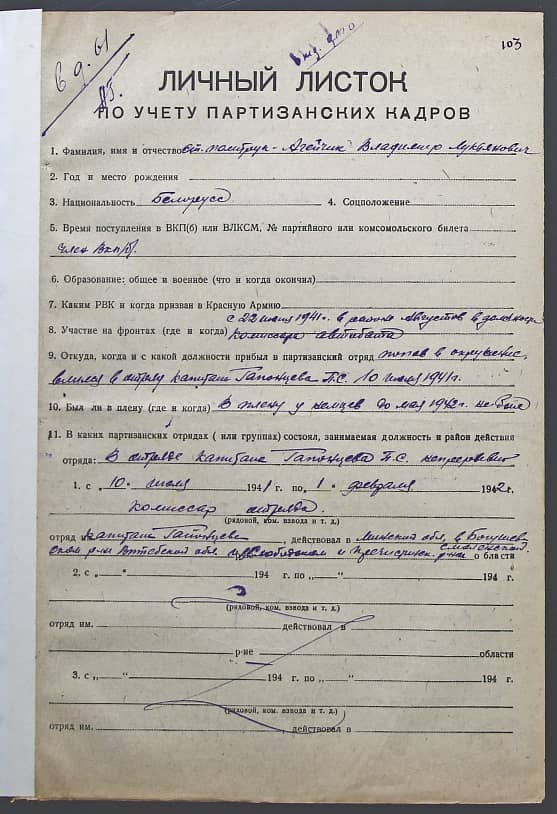 103
6 д. 61
ЛИЧНЫЙ ЛИСТОК
ПО УЧЕТУ ПАРТИЗАНСКИХ КАДРОВ
1. Фамилия, имя и отчество ст. политрук - Агейчик Владимир Лукьянович
2. Год и место рождения
3. Национальность Белорусс 4. Соцположение
5. Время поступления в ВКП(б) или ВЛКСМ, № партийного или комсомольского билета
член ВКП(б).
6. Образование: общее и военное (что и когда окончил)
7. Каким РВК и когда призван в Красную Армию
с 22 июня 1941г. в районе Августов в должности
8. Участие на фронтах (где и когда) комиссара автобата
9. Откуда, когда и с какой должности прибыл в партизанский отряд попав в окружение
влился в отряд капитана Гапонцева П.С. 10 июля 1941г.
10. Был ли в плену (где и когда) В плену у немцев до мая 1942г. не был
11. В каких партизанских отрядах (или группах) состоял, занимаемая должность и район действия
отряда: В отряде капитана Гапонцева П.С. непрерывно
1. с „10" июля 1941 г. по „1" февраля 1942 г.
комиссар отряда
(рядовой, ком. взвода и т. д.)
отряд капитана Гапонцева, действовал в Минской обл, в Богушев-
ском р-не Витебской обл. и Слободском и Пречистин. р-нах Смоленской области
2. с „ " 194 г. по „ " 194 г.
(рядовой, ком. взвода и т. д.)
отряд им. действовал в
р-не области
3. с „ " 194 г. по „ " 194 г.
(рядовой, ком. взвода и т. д.)
отряд им. , действовал в